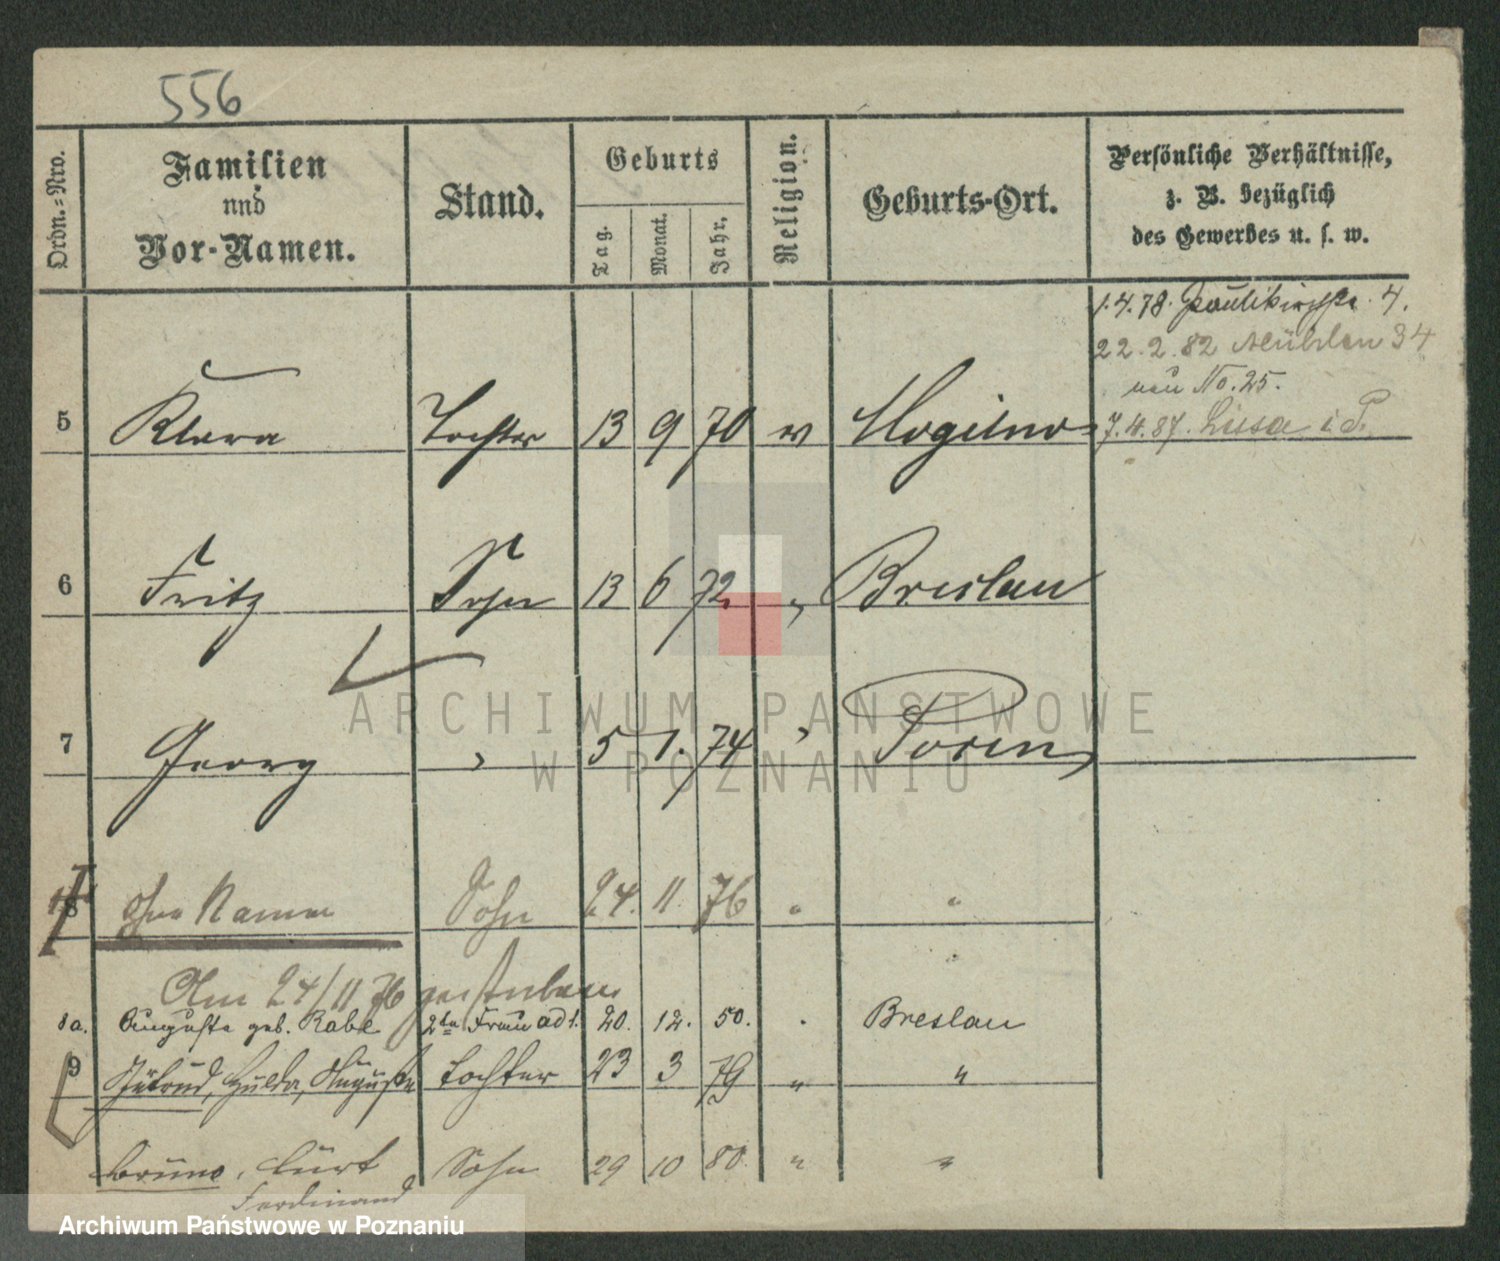 556
Ordn.-Nro.
Familien
und
Vor-Namen.
Stand.
Geburts
Tag.
Monat.
Jahr.
Religion.
Geburts-Ort.
Persönliche Verhältnisse,
z. B. bezüglich
des Gewerbes u. s. w.
1.4.78. Paulikirchstr. 4.
22.2.82 Mühlen 34
neu No. 25.
7.4.87. Lissa i. P.
5 Klara Tochter 13 9 70 Mogilno
6 Fritz Sohn 13 6 72 " Breslau
7 Georg " 5 1. 74 " Posen
8 ohne Namen Sohn 24. 11 76 " "
Am 24/11 76 gestorben
8a. Auguste geb. Rabe 2te Frau ad 1. 20. 12. 50. . Breslau
9 Gertrud, Hulda, Auguste Tochter 23 3 79 " "
Bruno, Curt Sohn 29 10 80 " "
Ferdinand
ARCHIWUM PAŃSTWOWE
W POZNANIU
Archiwum Państwowe w Poznaniu